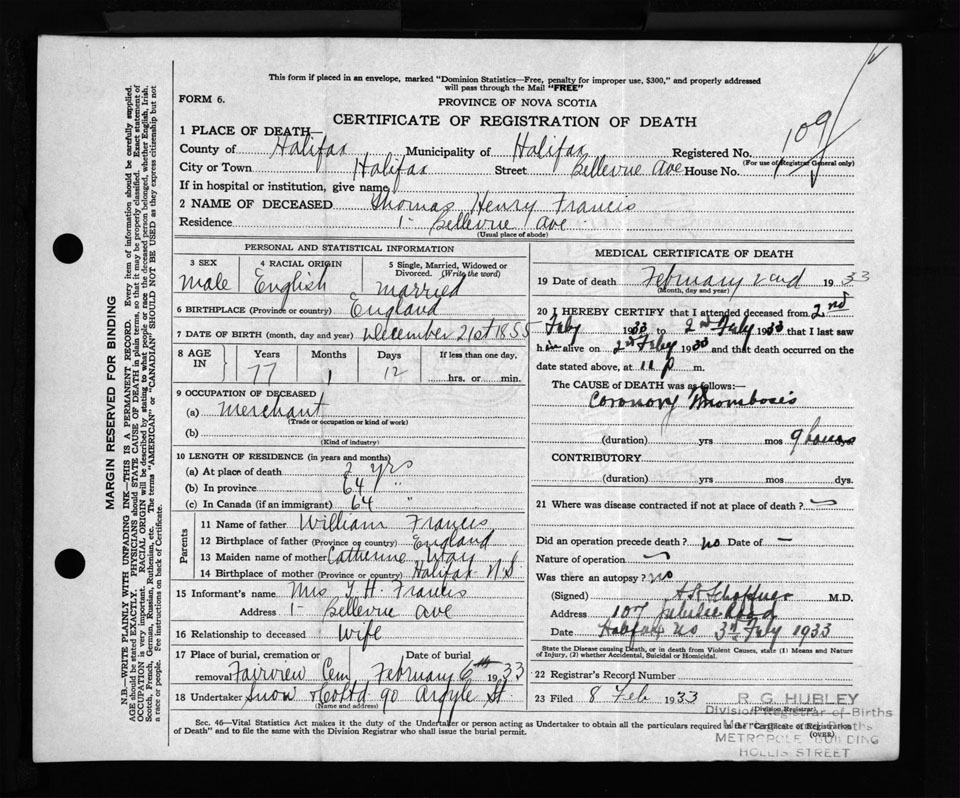 This form if placed in an envelope, marked "Dominion Statistics—Free, penalty for improper use, $300," and properly addressed
will pass through the Mail "FREE"
FORM 6.
PROVINCE OF NOVA SCOTIA
CERTIFICATE OF REGISTRATION OF DEATH
109
1 PLACE OF DEATH—
County of Halifax Municipality of Halifax Registered No.
(For use of Registrar General only)
City or Town Halifax Street Bellevue Ave House No. 1
If in hospital or institution, give name
2 NAME OF DECEASED Thomas Henry Francis
Residence 1 - Bellevue Ave
(Usual place of abode)
PERSONAL AND STATISTICAL INFORMATION
3 SEX
male
4 RACIAL ORIGIN
English
5 Single, Married, Widowed or
Divorced. (Write the word)
married
6 BIRTHPLACE (Province or country) England
7 DATE OF BIRTH (month, day and year) December 21st 1855
8 AGE IN
Years Months Days If less than one day,
77 1 12 hrs. or min.
9 OCCUPATION OF DECEASED
(a) merchant
(Trade or occupation or kind of work)
(b)
(Kind of industry)
10 LENGTH OF RESIDENCE (in years and months)
(a) At place of death 2 yrs
(b) In province 64 "
(c) In Canada (if an immigrant) 64 "
Parents
11 Name of father William Francis
12 Birthplace of father (Province or country) England
13 Maiden name of mother Catherine
14 Birthplace of mother (Province or country) Halifax N.S.
15 Informant's name Mrs T. H. Francis
Address 1 - Bellevue Ave
16 Relationship to deceased Wife
17 Place of burial, cremation or removal Date of burial
Fairview Cem February 6th 1933
18 Undertaker Snow & Co Ltd 90 Argyle St.
(Name and address)
MEDICAL CERTIFICATE OF DEATH
19 Date of death February 2nd 1933
(Month, day and year)
20 I HEREBY CERTIFY that I attended deceased from 2nd
Feby 1933 to 2nd Feby 1933 that I last saw
him alive on 2nd Feby 1933 and that death occurred on the
date stated above, at 11 p m.
The CAUSE of DEATH was as follows:—
Coronary Thrombosis
(duration) yrs mos 9 hours dys.
CONTRIBUTORY
(duration) yrs mos dys.
21 Where was disease contracted if not at place of death?
Did an operation precede death? no Date of —
Nature of operation
Was there an autopsy? no
(Signed) M.D.
Address 107 Jubilee Road
Date Halifax NS 3rd Feby 1933
State the Disease causing Death, or in death from Violent Causes, state (1) Means and Nature
of Injury, (2) whether Accidental, Suicidal or Homicidal.
22 Registrar's Record Number
23 Filed 8 Feb 1933
Division Registrar
R. G. HUBLEY
Division Registrar of Births
METROPOLE BUILDING
HOLLIS STREET
Sec. 46—Vital Statistics Act makes it the duty of the Undertaker or person acting as Undertaker to obtain all the particulars required in the "Certificate of Registration
of Death" and to file the same with the Division Registrar who shall issue the burial permit.
(OVER)
MARGIN RESERVED FOR BINDING
N.B.—WRITE PLAINLY WITH UNFADING INK—THIS IS A PERMANENT RECORD. Every item of information should be carefully supplied.
AGE should be stated EXACTLY. PHYSICIANS should STATE CAUSE OF DEATH in plain terms, so that it may be properly classified. Exact statement of
OCCUPATION is very important. RACIAL ORIGIN will be described by stating to what people or race the deceased person belonged, whether English, Irish,
Scotch, French, German, Russian, Ruthenian, etc. The terms "AMERICAN" or "CANADIAN" SHOULD NOT BE USED as they express citizenship but not
a race or people. See instructions on back of Certificate.